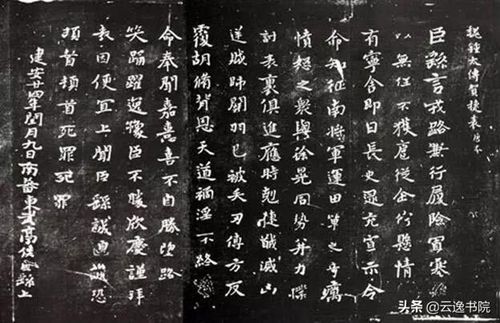 魏鍾太傅賀捷表
臣繇言戎路兼行履險冒寒
以無任不獲扈從企佇懸情
有寧舍即日長史逯充宣示令
命知征南將軍運田單之奇厲
憤怒之眾與徐晃同勢并力撲
討表裏俱進應時剋捷馘滅凶
逆賊帥關羽已被矢刃傅方反
覆胡脩背恩天道禍淫不終
命奉聞嘉憙喜不自勝望路
笑踊躍逸豫臣不勝欣慶謹拜
表因便宜上聞臣繇誠惶誠恐
頓首頓首死罪死罪
建安廿四年閏月九日南蕃東武亭侯臣繇上
头条@云逸书院